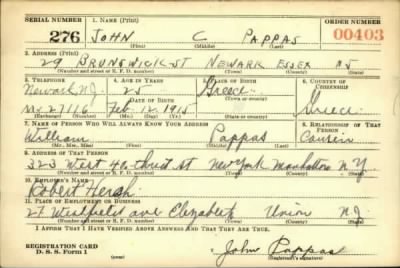 SERIAL NUMBER 1. NAME (Print) ORDER NUMBER
276 JOHN C PAPPAS 00403
(First) (Middle) (Last)
2. ADDRESS (Print)
29 BRUNSWICK ST NEWARK ESSEX NJ
(Number and street or R. F. D. number) (Town) (County) (State)
3. TELEPHONE 4. AGE IN YEARS 5. PLACE OF BIRTH 6. COUNTRY OF CITIZENSHIP
Newark N.J. 25 Greece
DATE OF BIRTH (Town or county)
27116 Feb. 12 1915 Greece
(Mo.) (Day) (Yr.) (State or country)
7. NAME OF PERSON WHO WILL ALWAYS KNOW YOUR ADDRESS 8. RELATIONSHIP OF THAT PERSON
William Pappas Cousin
(Mr., Mrs., Miss) (First) (Middle) (Last)
9. ADDRESS OF THAT PERSON
323 West St New York Manhattan N.Y.
(Number and street or R. F. D. number) (Town) (County) (State)
10. EMPLOYER'S NAME
Robert Hersh
11. PLACE OF EMPLOYMENT OR BUSINESS
27 Westfield ave Elizabeth Union N.J.
(Number and street or R. F. D. number) (Town) (County) (State)
I AFFIRM THAT I HAVE VERIFIED ABOVE ANSWERS AND THAT THEY ARE TRUE.
REGISTRATION CARD
D. S. S. Form 1 John Pappas
(Registrant's signature)